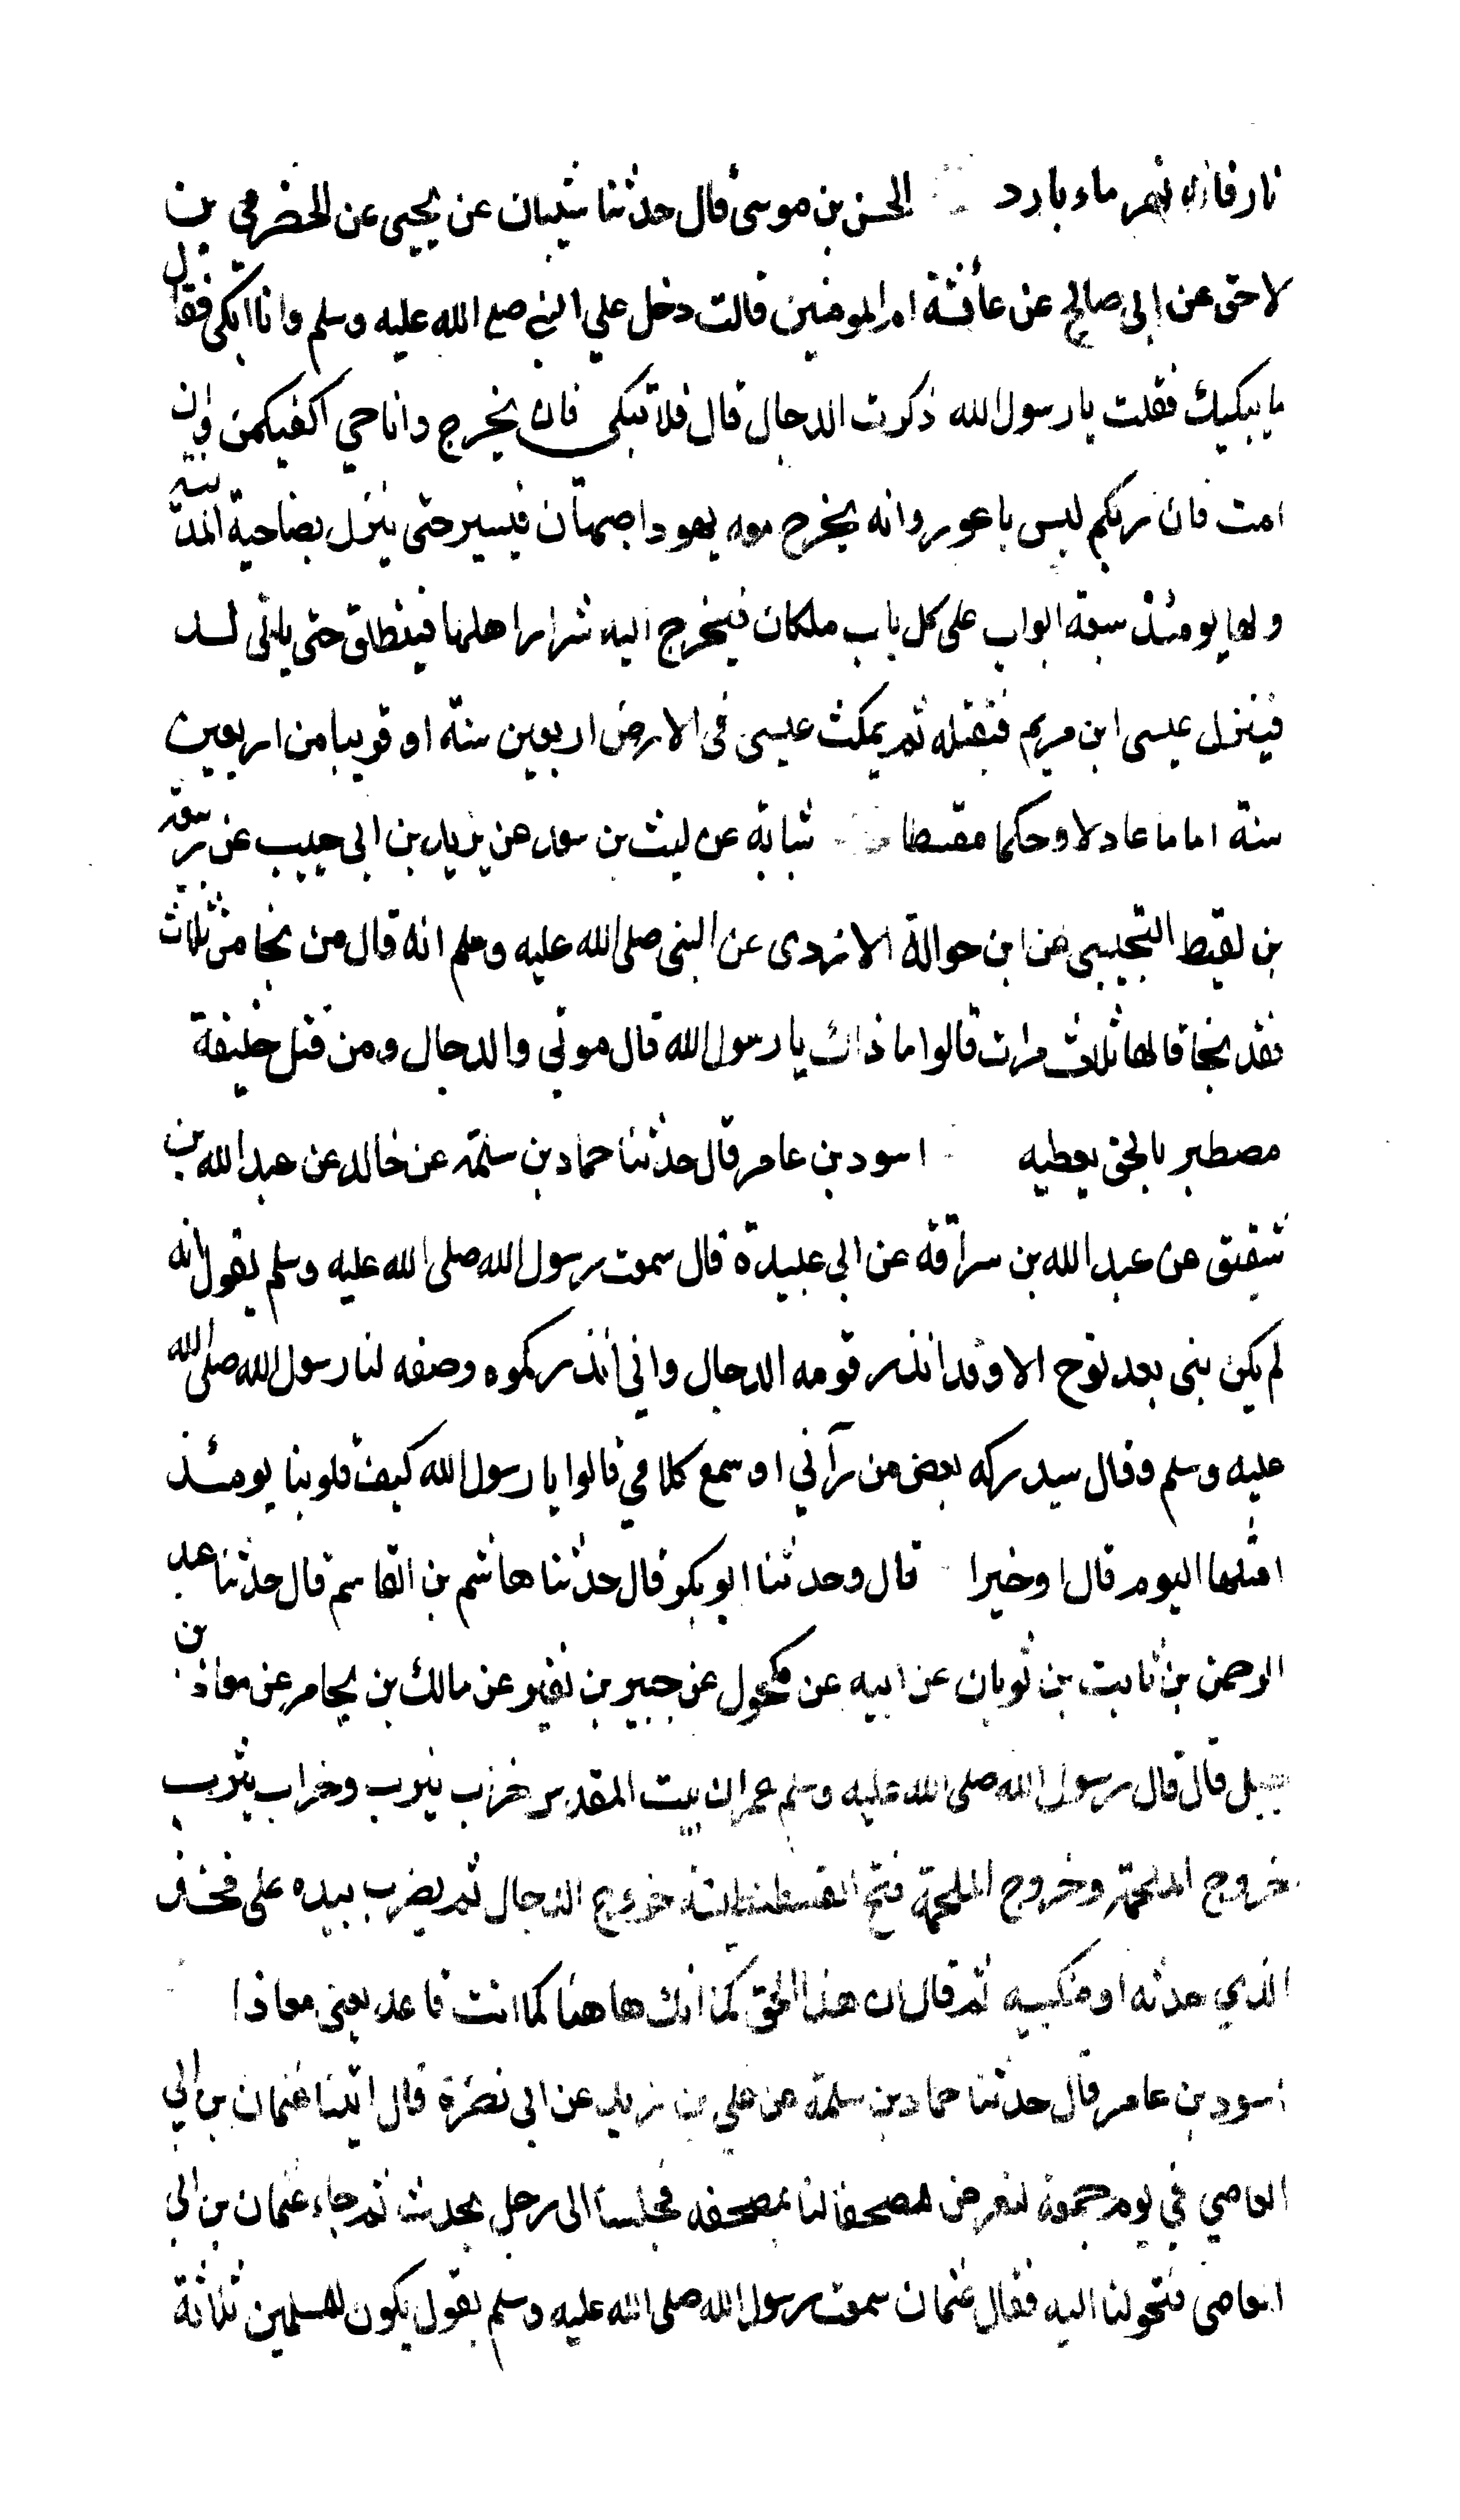 نار فانه نهر ماء بارد الحسن بن موسى قال حدثنا شيبان عن يحيى عن الحضرمي بن
لاحق عن ابي صالح عن عائشة ام المومنين قالت دخل علي النبي صلى الله عليه وسلم وانا ابكي فقال
ما يبكيك فقلت يا رسول الله ذكرت الدجال قال فلا تبكي فان يخرج وانا حي اكفيكموه وان
امت فان ربكم ليس باعور وانه يخرج معه يهود اصبهان فيسير حتى ينزل بضاحية المدينة
ولها يومئذ سبعة ابواب على كل باب ملكان فيخرج اليه شرار اهلها فينطلق حتى ياتى لد
فينزل عيسى ابن مريم فيقتله ثم يمكث عيسى في الارض اربعين سنة او قريبا من اربعين
سنة اماما عادلا وحكما مقسطا شبابة عن ليث بن سعد عن يزيد بن ابي حبيب عن ربيعة
بن لقيط التجيبي عن ابن حوالة الازدي عن النبي صلى الله عليه وسلم انه قال من نجا من ثلاث
فقد نجا قالها ثلاث مرات قالوا ما ذاك يا رسول الله قال موتي والدجال ومن قتل خليفة
مصطبر بالحق يعطيه اسود بن عامر قال حدثنا حماد بن سلمة عن خالد عن عبد الله بن
شقيق عن عبد الله بن سراقة عن ابي عبيدة قال سمعت رسول الله صلى الله عليه وسلم يقول انه
لم يكن نبي بعد نوح الا وقد انذر قومه الدجال واني انذركموه وصفه لنا رسول الله صلى الله
عليه وسلم وقال سيدركه بعض من رآني او سمع كلامي قالوا يا رسول الله كيف قلوبنا يومئذ
امثلها اليوم قال او خيرا قال وحدثنا ابو بكر قال حدثنا هاشم بن القاسم قال حدثنا عبد
الرحمن بن ثابت بن ثوبان عن ابيه عن مكحول عن جبير بن نفير عن مالك بن يخامر عن معاذ بن
جبل قال قال رسول الله صلى الله عليه وسلم عمران بيت المقدس خراب يثرب وخراب يثرب
خروج الملحمة وخروج الملحمة فتح القسطنطينية خروج الدجال ثم يضرب بيده على فخذ
الذي حدثه او منكبيه ثم قال ان هذا الحق كما انك هاهنا كما انت قاعد يعني معاذا
اسود بن عامر قال حدثنا حماد بن سلمة عن علي بن زيد عن ابي نضرة قال اتينا عثمان بن ابي
العاصي في يوم جمعة لنعرض مصحفا لنا بمصحفه فجلسنا الى رجل يحدث ثم جاء عثمان بن ابي
العاصي فتحولنا اليه فقال عثمان سمعت رسول الله صلى الله عليه وسلم يقول يكون للمسلمين ثلاثة